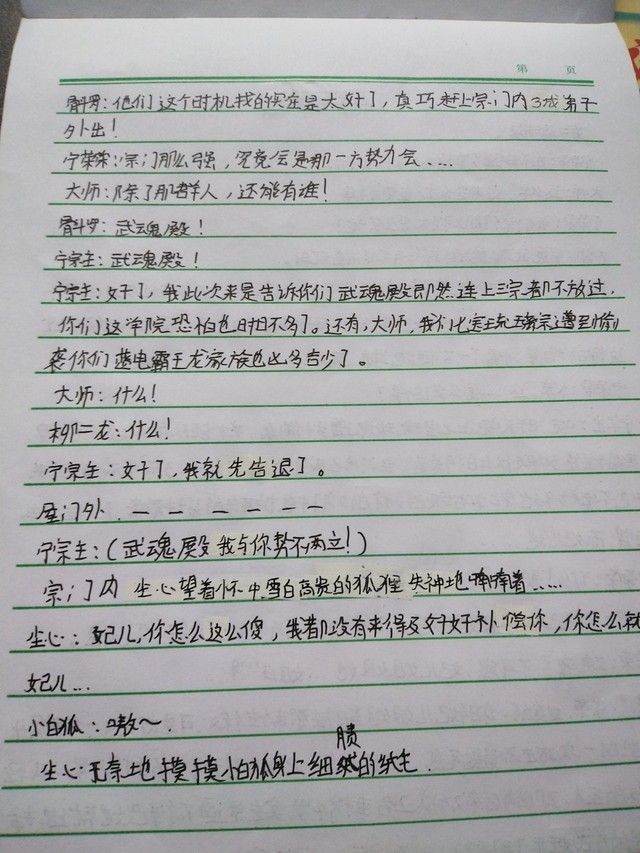 第 页
骨斗罗:他们这个时机找的实在是太好了,真巧赶上宗门内3成弟子
外出!
宁荣荣:宗门那么强,究竟会是那一方势力会....
大师:除了那群人,还能有谁!
骨斗罗:武魂殿!
宁宗主:武魂殿!
宁宗主:好了,我此次来是告诉你们武魂殿即然连上三宗都不放过,
你们这学院恐怕也时日不多了。还有,大师,我们七宝琉璃宗遭到偷
袭你们蓝电霸王龙家族也凶多吉少了。
大师:什么!
柳二龙:什么!
宁宗主:好了,我就先告退了。
屋门外. — — — — — —
宁宗主:(武魂殿我与你势不两立!)
宗门内 尘心望着怀中雪白高贵的狐狸 失神地喃喃着.....
尘心:妃儿,你怎么这么傻,我都没有来得及好好补偿你,你怎么就
妃儿...
小白狐:嗷～.
腻
尘心无奈地摸摸小白狐身上细 的绒毛.